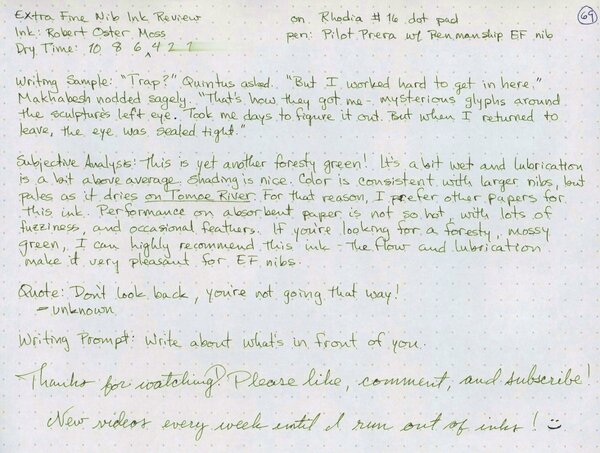 Extra Fine Nib Ink Review on: Rhodia #16 dot pad 69
Ink: Robert Oster Moss pen: Pilot Prera w/ Penmanship EF nib
Dry Time: 10 8 6 4 2 1
Writing Sample: "Trap?" Quintus asked. "But I worked hard to get in here."
Makhabesh nodded sagely. "That's how they got me - mysterious glyphs around
the sculpture's left eye. Took me days to figure it out. But when I returned to
leave, the eye was sealed tight."
Subjective Analysis: This is yet another foresty green! It's a bit wet and lubrication
is a bit above average. Shading is nice. Color is consistent with larger nibs, but
pales as it dries on Tomoe River. For that reason, I prefer other papers for
this ink. Performance on absorbent paper is not so hot, with lots of
fuzziness, and occasional feathers. If you're looking for a foresty, mossy
green, I can highly recommend this ink - the flow and lubrication
make it very pleasant for EF nibs.
Quote: Don't look back, you're not going that way!
- unknown
Writing Prompt: Write about what's in front of you.
Thanks for watching! Please like, comment, and subscribe!
New videos every week until I run out of inks! :)